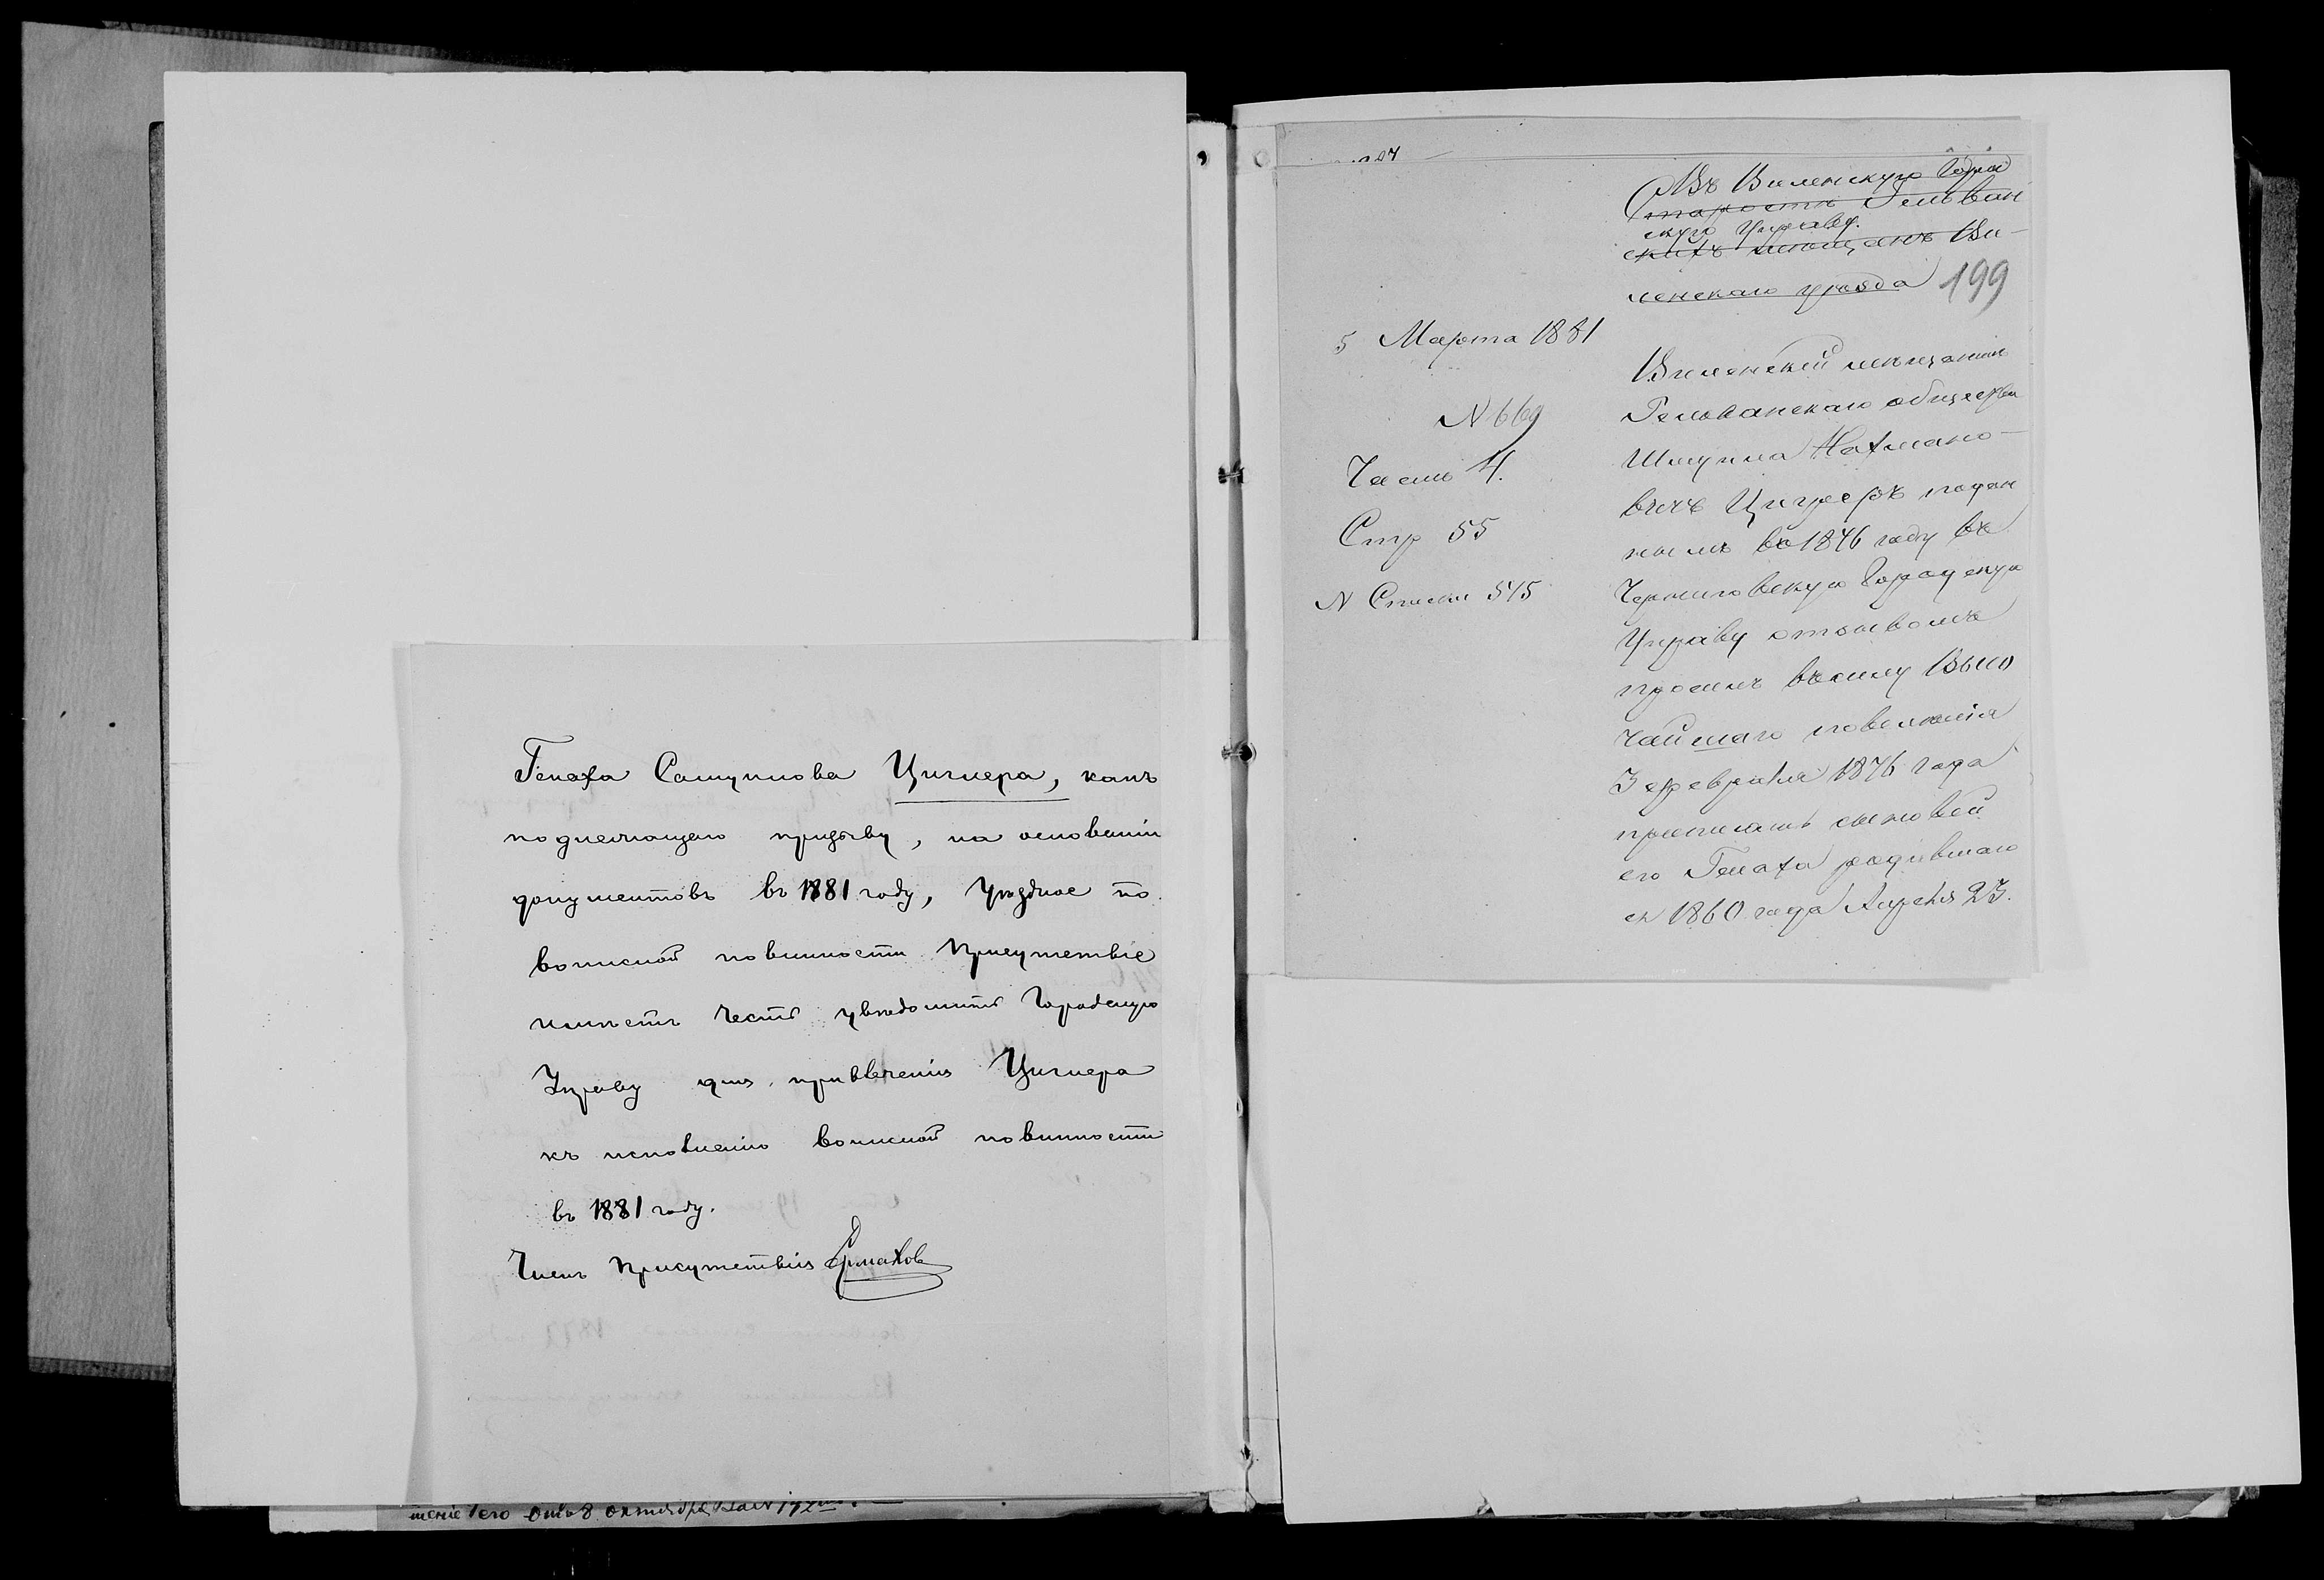 Генаха Самуилова Циглера, какъ
подлежащаго призыву, на основаніи
документовъ въ 1881 году, Уѣздное по
воинской повинности Присутствіе
имѣетъ честь увѣдомить Городскую
Управу для привлеченія Циглера
къ исполненію воинской повинности
въ 1881 году.
Членъ Присутствія Ермаков
теніе его отъ 8 октября
Въ Виленскую Город
Старостѣ Гельван
скую Управу.
скихъ мѣщанъ Ви-
ленскаго уѣзда
199
5 Марта 1881
N 669
Часть 4.
Стр 55
N Списки 515
Виленскій мѣщанинъ
Гельванскаго общества
Шмуила Нахмано-
вичъ поден
нымъ въ 1876 году въ
Черниговскую Городскую
Управу отзывомъ
просилъ въ силу Высо
чайшаго повелѣнія
3 февраля 1876 года
приписать сыновей
его Генаха родившаго
ся 1860 года Апрѣля 23.